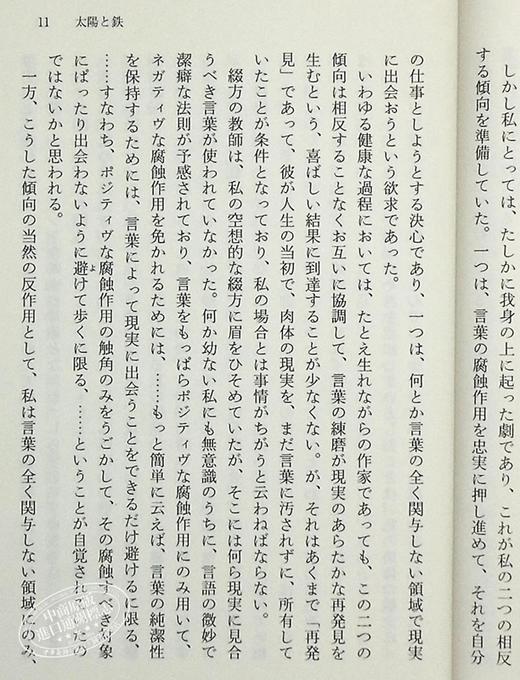 しかし私にとっては、たしかに我身の上に起った劇であり、これが私の二つの相反
する傾向を準備していた。一つは、言葉の腐蝕作用を忠実に押し進めて、それを自分
11 太陽と鉄
の仕事としようとする決心であり、一つは、何とか言葉の全く関与しない領域で現実
に出会おうという欲求であった。
いわゆる健康な過程においては、たとえ生れながらの作家であっても、この二つの
傾向は相反することなくお互いに協調して、言葉の練磨が現実のあらたかな再発見を
生むという、喜ばしい結果に到達することが少なくない。が、それはあくまで「再発
見」であって、彼が人生の当初で、肉体の現実を、まだ言葉に汚されずに、所有して
いたことが条件となっており、私の場合とは事情がちがうと云わねばならない。
綴方の教師は、私の空想的な綴方に眉をひそめていたが、そこには何ら現実に見合
うべき言葉が使われていなかった。何か幼ない私にも無意識のうちに、言語の微妙で
潔癖な法則が予感されており、言葉をもっぱらポジティヴな腐蝕作用にのみ用いて、
ネガティヴな腐蝕作用を免かれるためには、……もっと簡単に云えば、言葉の純潔性
を保持するためには、言葉によって現実に出会うことをできるだけ避けるに限る、
……すなわち、ポジティヴな腐蝕作用の触角のみをうごかして、その腐蝕すべき対象
にばったり出会わないように避けて歩くに限る、……ということが自覚されたの
ではないかと思われる。
一方、こうした傾向の当然の反作用として、私は言葉の全く関与しない領域にのみ、